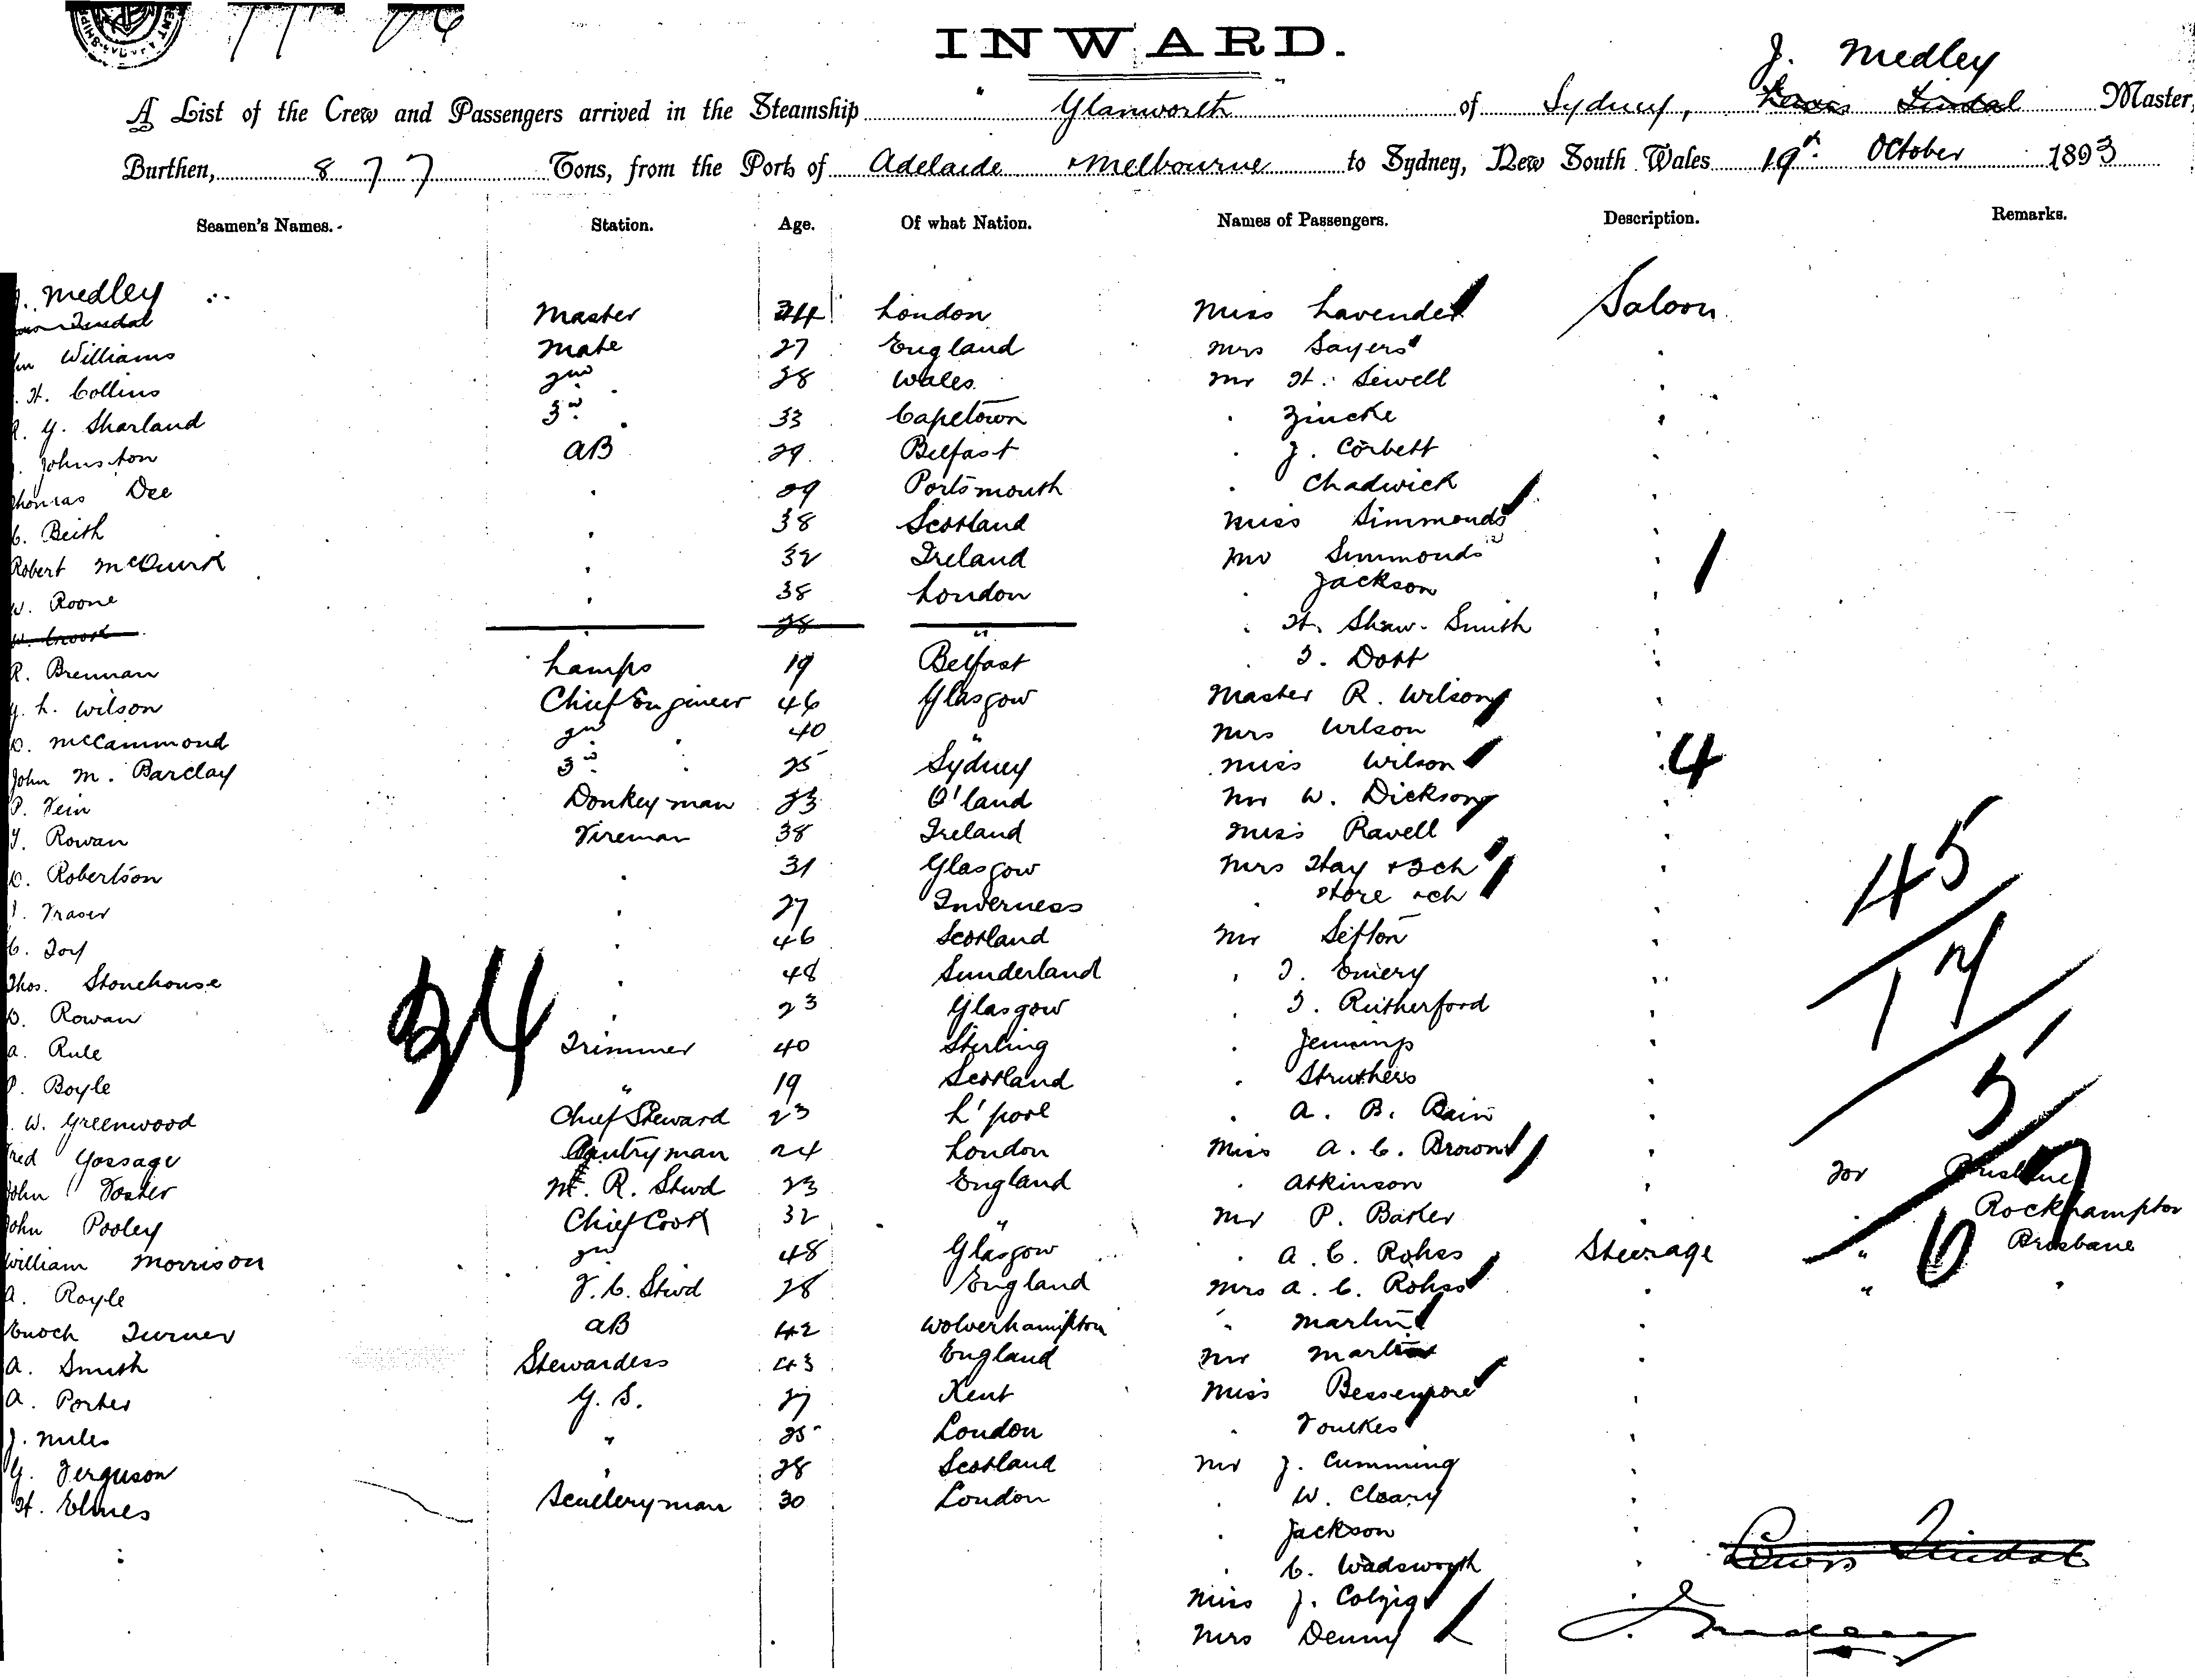 INWARD.
J. Medley
A List of the Crew and Passengers arrived in the Steamship "Glanworth" of Sydney, Lewis Tindal Master,
Burthen, 877 Tons, from the Port of Adelaide & Melbourne to Sydney, New South Wales 19th October 1893
Seamen's Names. Station. Age. Of what Nation. Names of Passengers. Description. Remarks.
J. Medley Master London Miss Lavender Saloon
Williams Mate 27 England Mrs Sayers
H. Collins 2nd 28 Wales Mr H. Sewell
Y. Sharland 3rd 33 Capetown " Zincke
Johnston AB 29 Belfast " J. Corbett
Thomas Dee " 29 Portsmouth " Chadwick
C. Beith " 38 Scotland Miss Simmonds
Robert McQuirk " 32 Ireland Mr Simmonds
W. Roone " 38 London " Jackson
W. Crook " 28 " " H. Shaw-Smith
R. Brennan Lamps 19 Belfast " T. Dott
Y. L. Wilson Chief Engineer 46 Glasgow Master R. Wilson
D. McCammond 2nd " 40 " Mrs Wilson
John M. Barclay 3rd " 25 Sydney Miss Wilson 4
P. Fein Donkeyman 23 O'land Mr W. Dickson
Y. Rowan Fireman 38 Ireland Miss Ravell
D. Robertson " 31 Glasgow Mrs Hay & 2 ch 45
Fraser " 27 Inverness " Store & ch
C. Foy " 46 Scotland Mr Sefton 17
Thos. Stonehouse " 48 Sunderland " T. Emery
D. Rowan 34 " 23 Glasgow " T. Rutherford
A. Rule Trimmer 40 Stirling " Jennings
P. Boyle " 19 Scotland " Struthers 5
W. Greenwood Chief Steward 23 L'pool " A. B. Bain
Fred Gossage Pantryman 24 London Miss A. C. Brown
John Foster M. R. Stwd 23 England " Atkinson for Brisbane
John Pooley Chief Cook 32 " Mr P. Baker " Rockhampton
William Morrison 2nd 48 Glasgow " A. C. Rohss Steerage " Brisbane
A. Royle F. C. Stwd 28 England Mrs A. C. Rohss " " "
Enoch Turner AB 42 Wolverhampton " Martin
A. Smith Stewardess 43 England Mr Martin
A. Porter G. S. 27 Kent Miss
J. Miles " 25 London " Foulkes
G. Ferguson " 28 Scotland Mr J. Cumming
H. Elmes Sculleryman 30 London " W. Cleary
" Jackson
" C. Wadsworth
Lewis Tindal
Miss J.
Mrs Denny
J. Medley